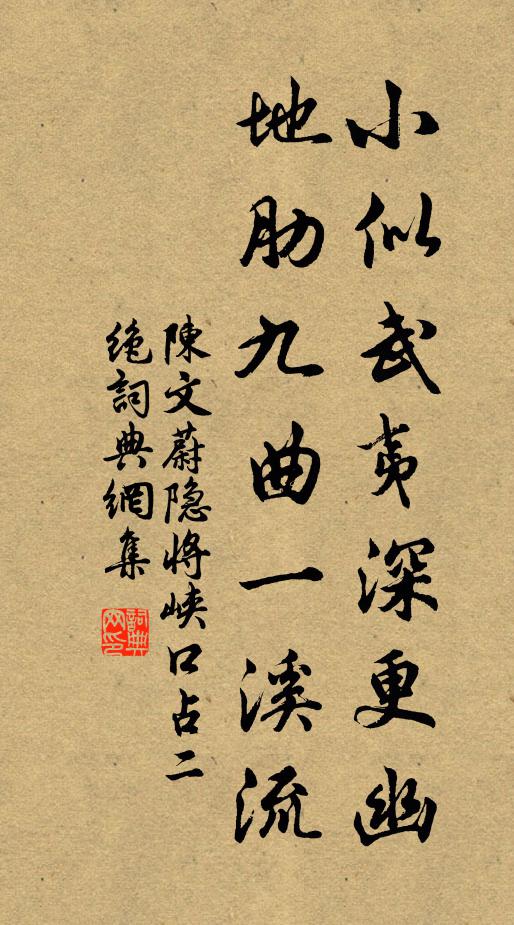 小似武夷深更幽
地肋九曲一溪流
陳文蔚隐將峽口占二
绝詞典網集
詞典网印